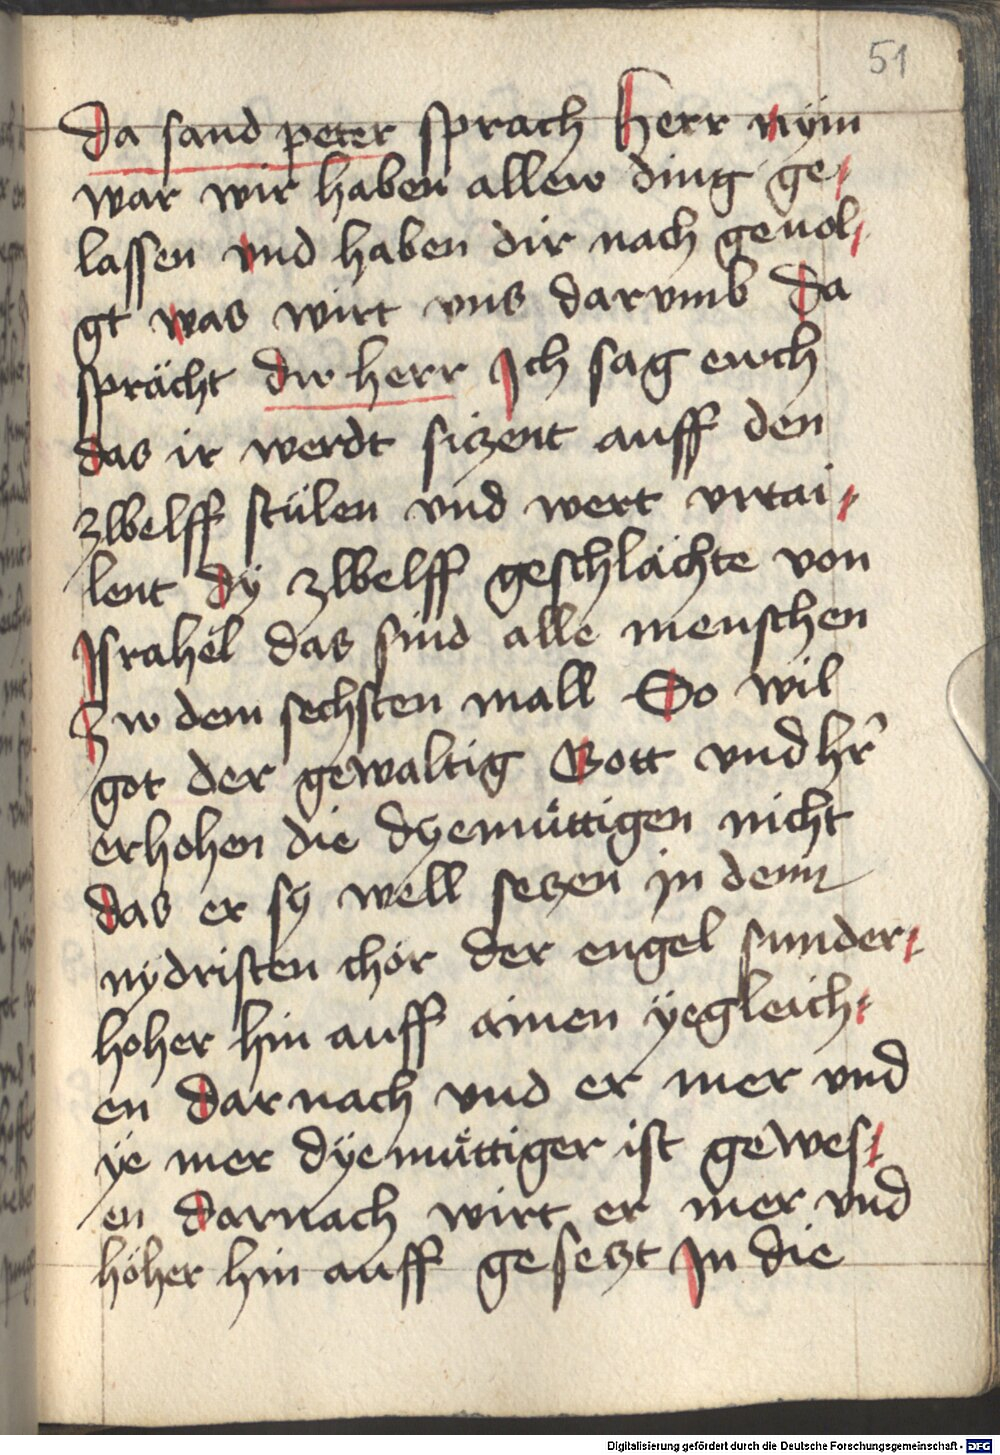 51
da sand peter sprach herr nÿm
war wir haben allew ding ge-
lassen vnd haben dir nach geuol-
gt was wirt vns darvmb da
sprächt dw herr Ich sag ewch
das ir werdt siczent auff den
zwelff stülen vnd wert vrtai-
lent dÿ zwelff geschlächte von
Israhel das sind alle menschen
Zw dem sechsten mall So wil
got der gewaltig Gott vnd hr̄
erhohen die dyemüttigen nicht
das er sy well seczen jn denn
nÿdristen chör der engel sunder-
hoher hin auff ainen ÿegleich-
en darnach vnd er mer vnd
ÿe mer dÿemüttiger ist gewes-
en darnach wirt er mer vnd
höher hin auff geseczt Jn die
Digitalisierung gefördert durch die Deutsche Forschungsgemeinschaft - DFG